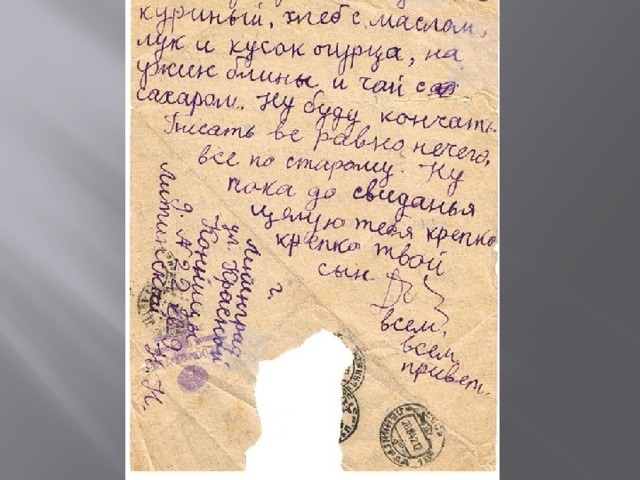 куриный, хлеб с маслом,
лук и кусок огурца, на
ужин блины и чай с
сахаром. Ну буду кончать.
Писать ве равно нечего,
все по старому. Ну
пока до свиданья
целую тебя крепко
крепко твой
сын.
всем,
всем
привет.
г. Ленинград
ул. Красной
Конницы
д. №
Литинской Н. К.